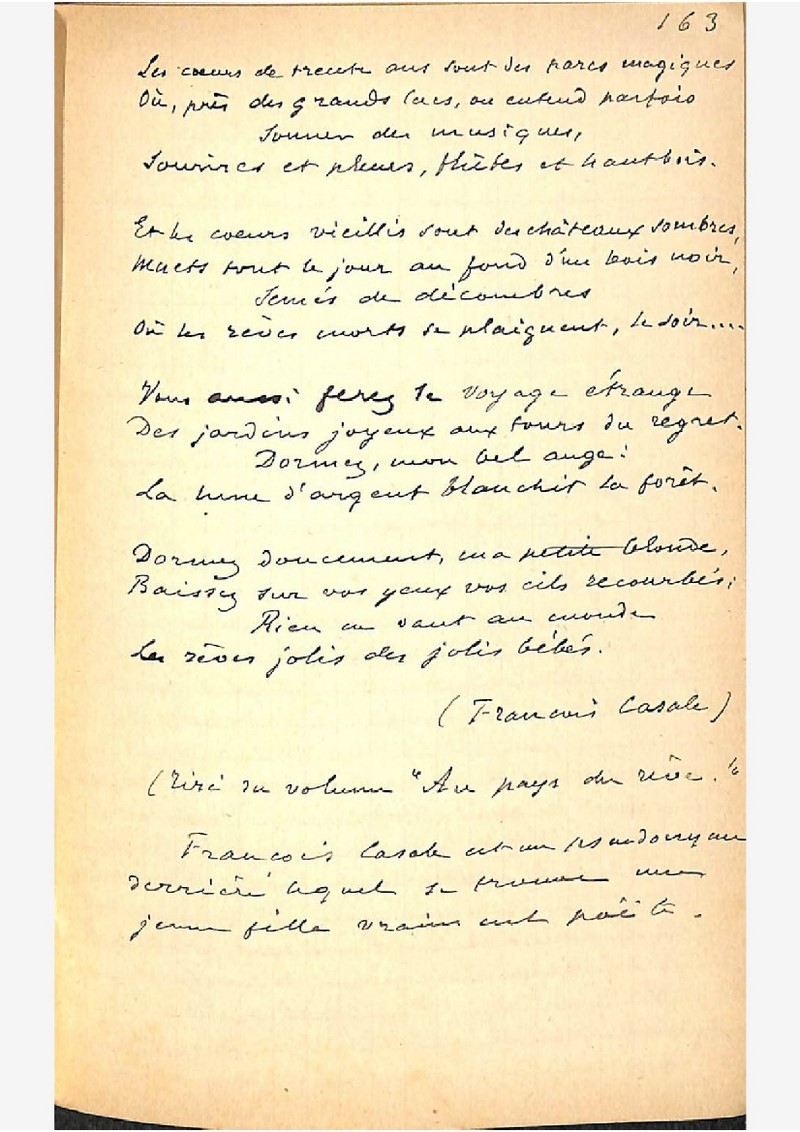 163
Les cœurs de trente ans sont des parcs magiques
Où, près des grands lacs, on entend parfois
Sonner des musiques,
Sourires et pleurs, flûtes et hautbois.
Et les coeurs vieillis sont des châteaux sombres,
Muets tout le jour au fond d'un bois noir,
Semés de décombres
Où les rêves morts se plaignent, le soir....
Vous aussi ferez le voyage étrange
Des jardins joyeux aux tours du regret.
Dormez, mon bel ange:
La lune d'argent blanchit la forêt.
Dormez doucement, ma petite blonde,
Baissez sur vos yeux vos cils recourbés;
Rien ne vaut au monde
Les rêves jolis des jolis bébés.
(François Casale)
(Tiré du volume "Au pays du rêve."
François Casale est un pseudonyme
derrière lequel se trouve une
jeune fille vraiment poëte.